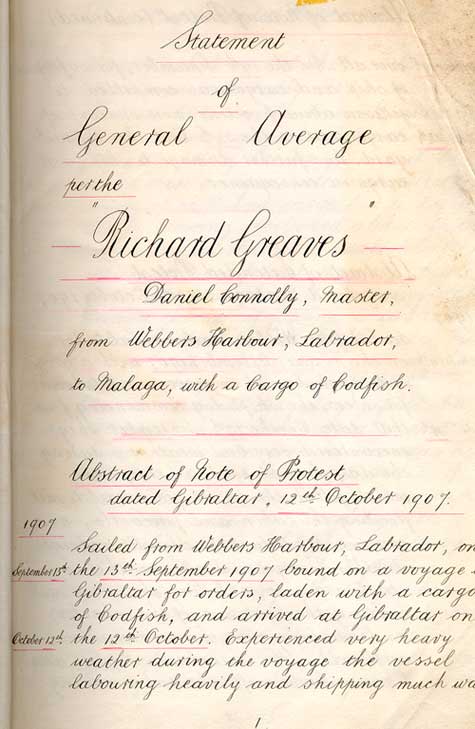 Statement
of
General Average
per the
"Richard Greaves"
Daniel Connolly, Master,
from Webbers Harbour, Labrador,
to Malaga, with a Cargo of Codfish.
Abstract of Note of Protest
dated Gibraltar, 12th October 1907.
1907
Sailed from Webbers Harbour, Labrador, on
September 13th the 13th September 1907 bound on a voyage
Gibraltar for orders, laden with a cargo
of Codfish, and arrived at Gibraltar on
October 12th. the 12th October. Experienced very heavy
weather during the voyage the vessel
labouring heavily and shipping much wa
1